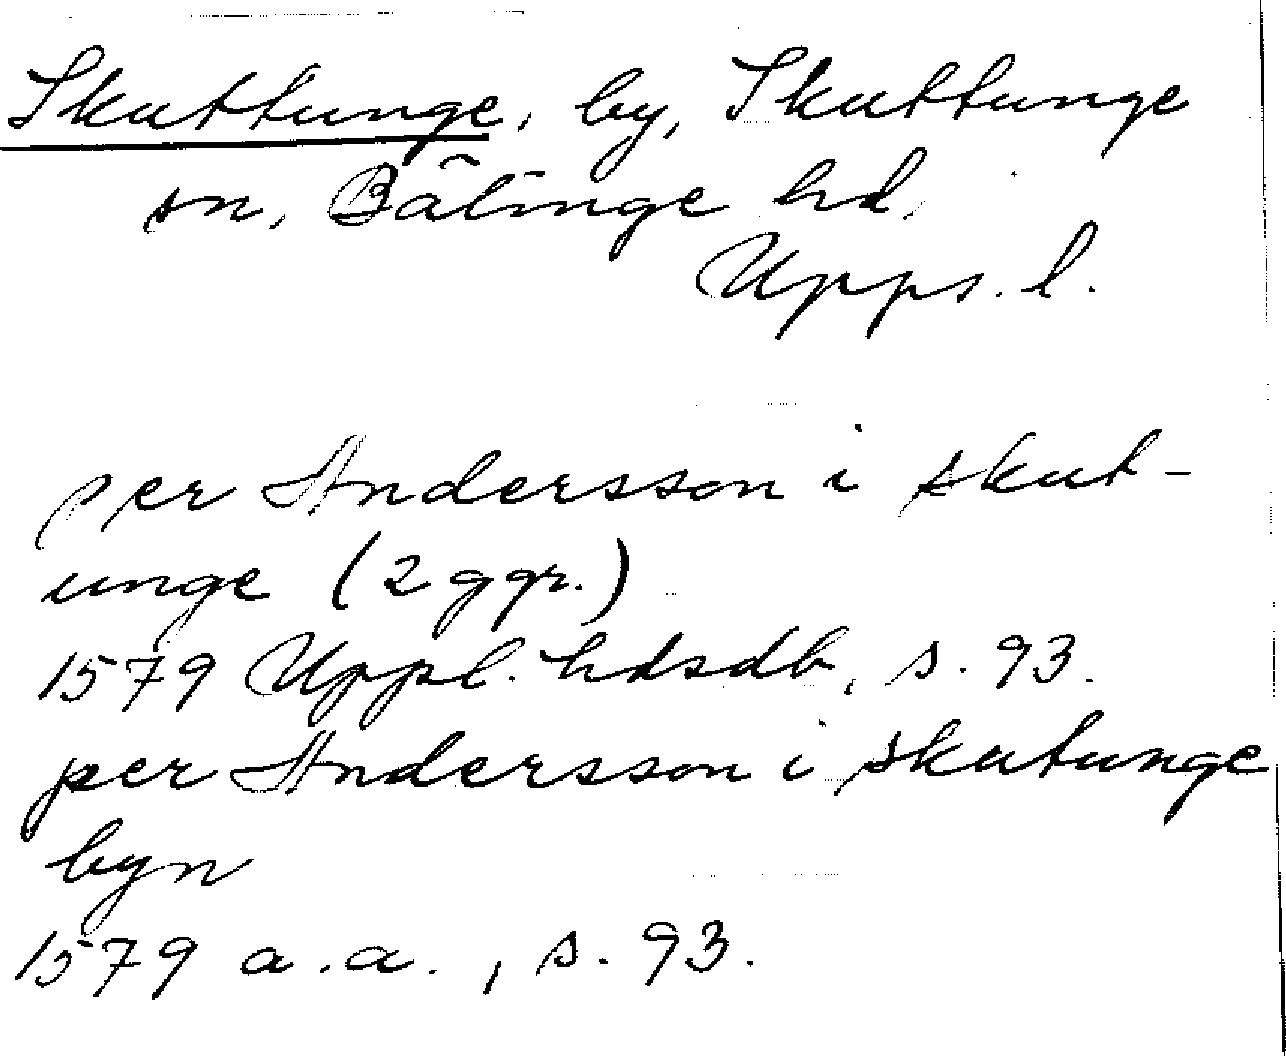 Skuttunge, by, Skuttunge
sn, Bälinge hd,
Upps. l.
per Andersson i skut-
unge (2 ggr.)
1579 Uppl. hdsdb, s. 93.
per Andersson i skutunge
byn
1579 a.a., s. 93.